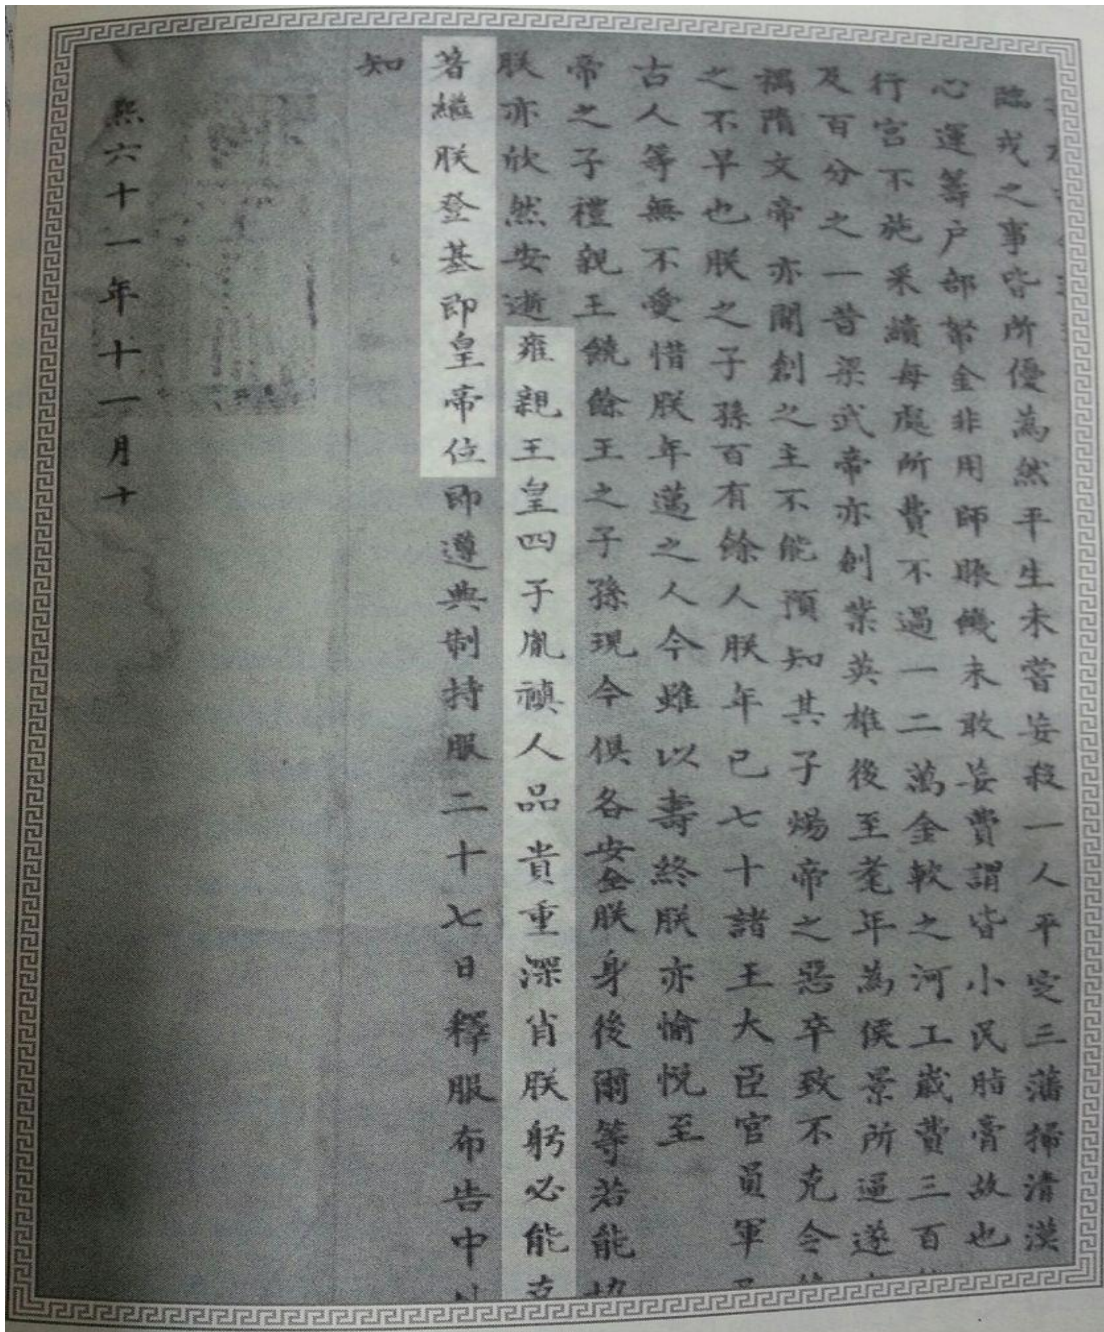 臨戎之事皆所優為然平生未嘗妄殺一人平定三藩掃清漠
心運籌戶部帑金非用師賑饑未敢妄費謂皆小民脂膏故也
行宮不施采繢每處所費不過一二萬金較之河工歲費三百
及百分之一昔梁武帝亦創業英雄後至耄年為侯景所逼遂
禍隋文帝亦開創之主不能預知其子煬帝之惡卒致不克令
之不早也朕之子孫百有餘人朕年已七十諸王大臣官員軍
古人等無不愛惜朕年邁之人今雖以壽終朕亦愉悅至
帝之子禮親王饒餘王之子孫現今俱各安全朕身後爾等若能協
朕亦欣然安逝雍親王皇四子胤禛人品貴重深肖朕躬必能克
著繼朕登基即皇帝位即遵典制持服二十七日釋服布告中
知
熙六十一年十一月十